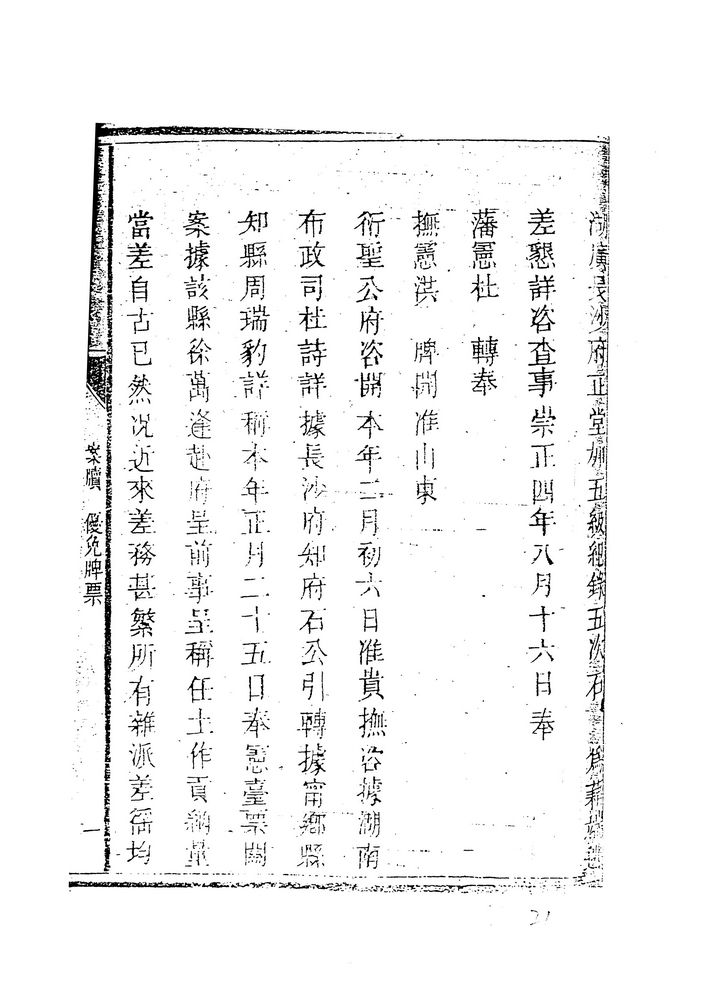 湖廣長沙府正堂加五級紀錄五次石 爲
差懇詳咨查事崇正四年八月十六日奉
藩憲杜 轉奉
撫憲洪 牌開准山東
衍聖公府咨開本年二月初六日准貴撫咨據湖南
布政司杜詩詳據長沙府知府石公引轉據甯鄉縣
知縣周瑞豹詳稱本年正月二十五日奉憲臺票開
案據該縣徐萬逢赴府呈前事呈稱任土作貢納量
當差自古已然况近來差務甚繁所有雜派差徭均
案牘 優免牌票
一
21